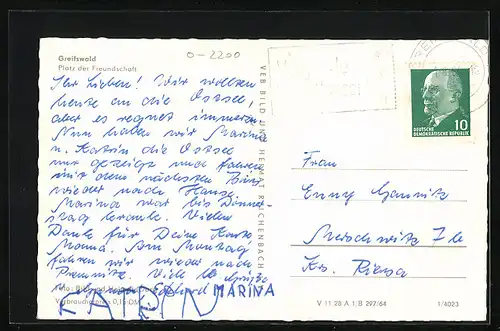 Greifswald
Platz der Freundschaft
0-2200
Ihr Lieben! Wir wollten
heute an die Ostsee,
aber es regnet immerzu
Nun haben wir Marina
u. Katrin die Ostsee
nur gezeigt und fahren
mit dem nächsten Bus
wieder nach Hause.
Marina war bis Donners-
tag krank. Vielen
Dank für Deine Karte
Mama. Am Montag
fahren wir wieder nach
Premnitz. Viele Grüße
KATRIN MARINA
Verbraucherpreis 0,15 DM
VEB BILD UND HEIMAT REICHENBACH
10
DEUTSCHE
DEMOKRATISCHE REPUBLIK
Frau
Merschwitz 7b
Krs. Riesa
V 11,28 A 1,B 297/64 1/4023